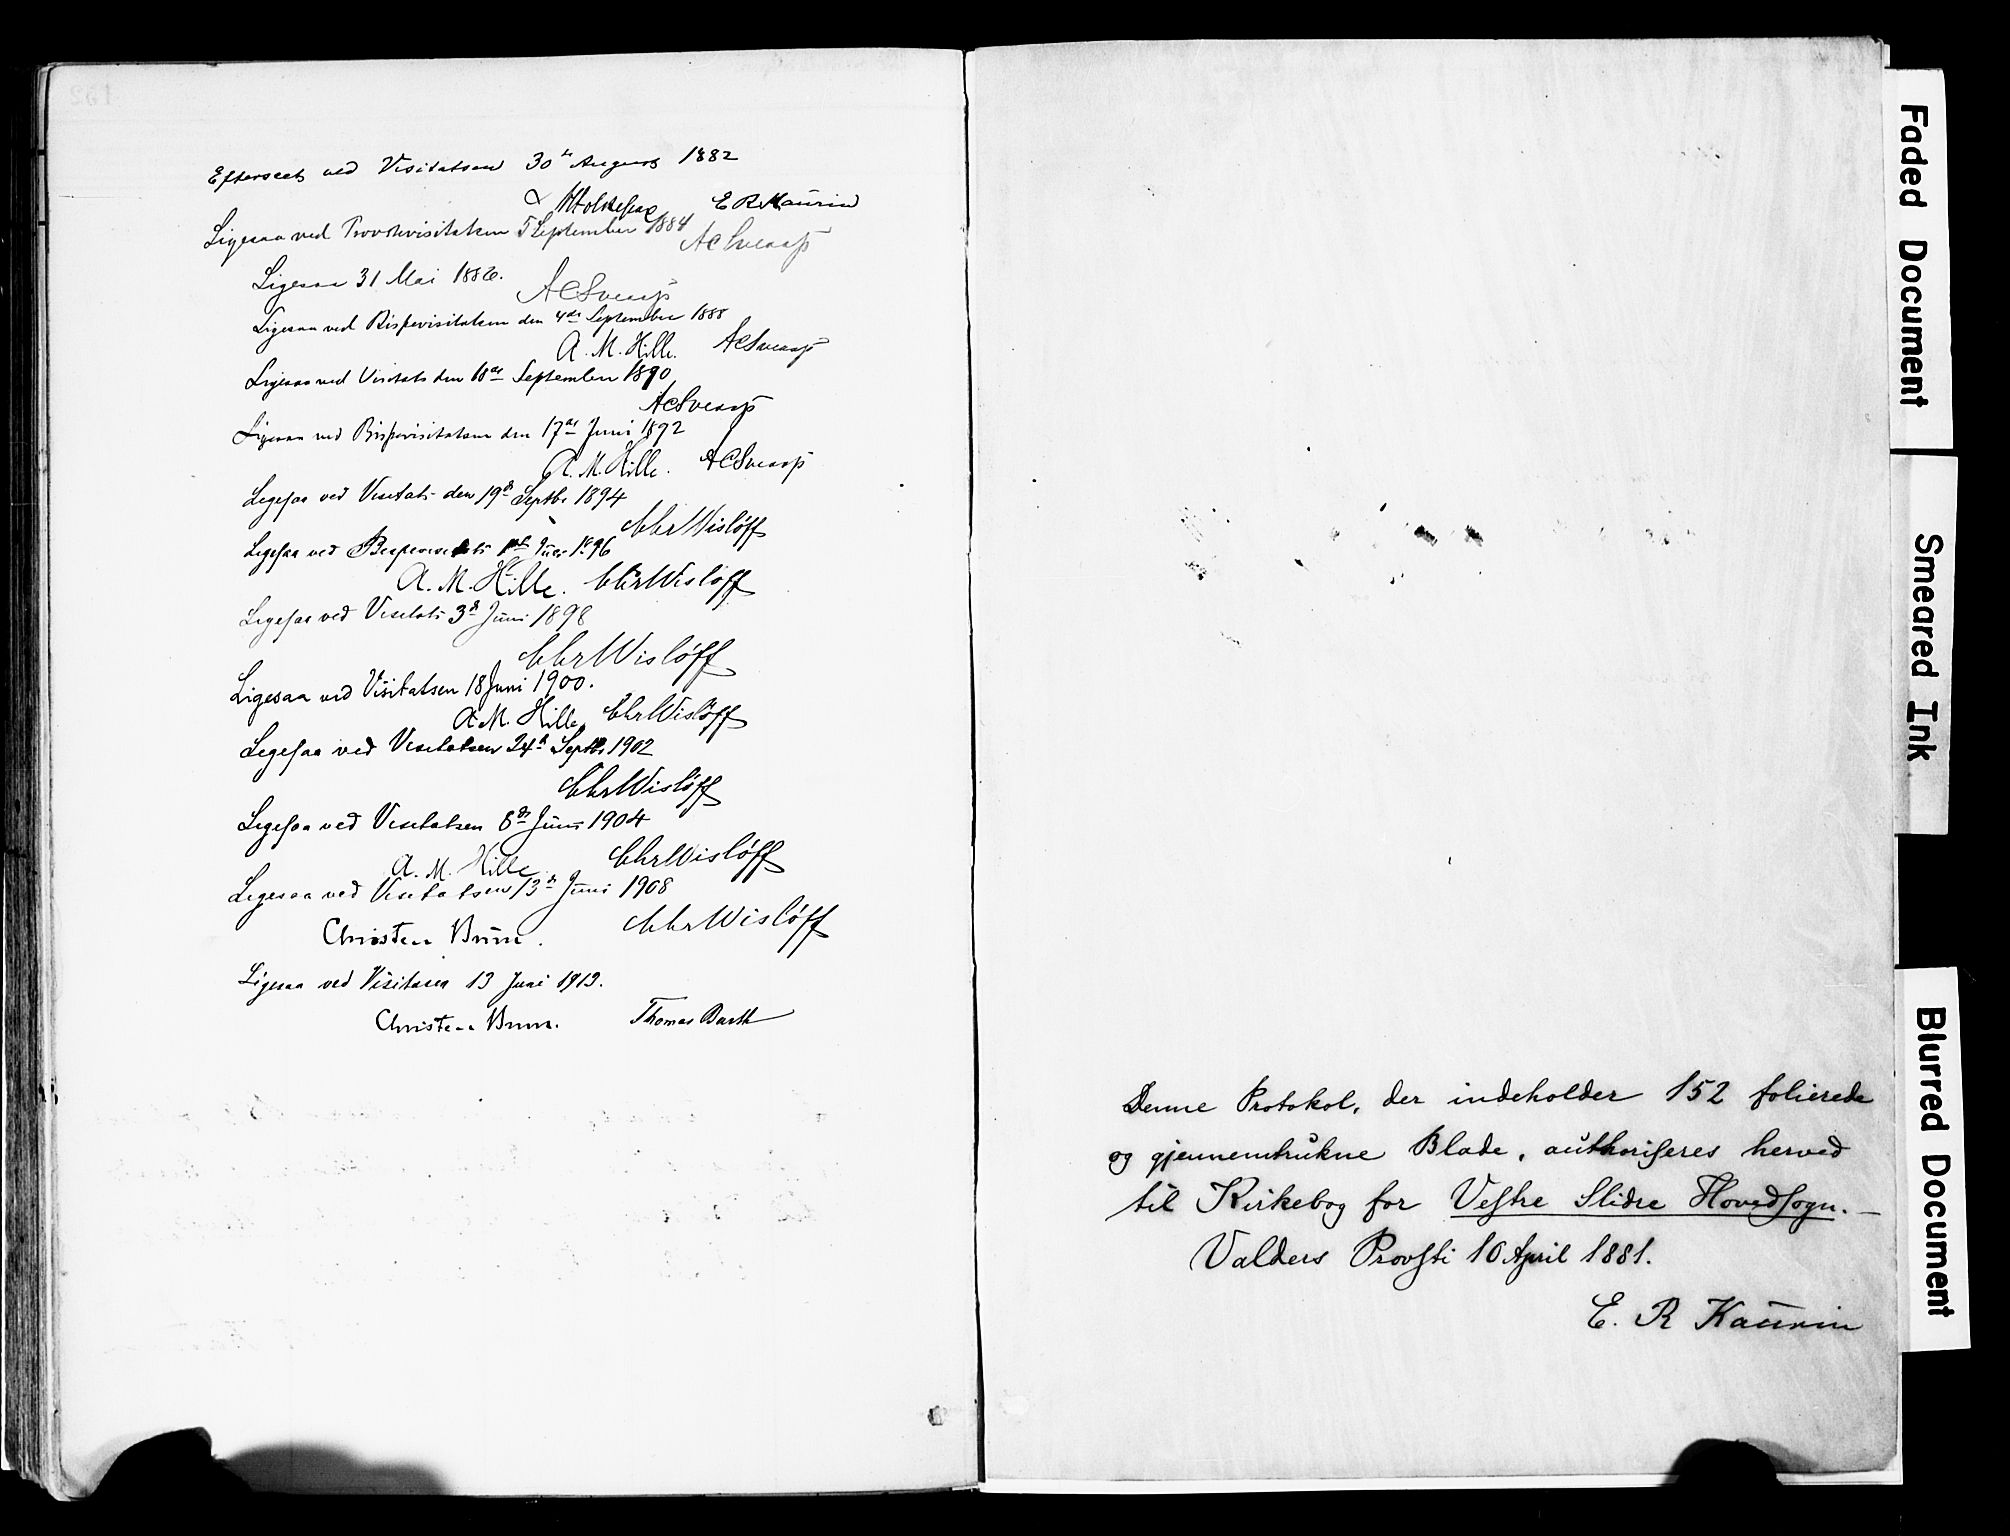 Efterseet ved Visitatsen 30te August 1882
E R Kaurin
Ligesaa ved Provstevisitatsen 5 September 1884 ACSveaas
Ligesaa 31 Mai 1886.
ACSveaas
Ligesaa ved Bispevisitatsen den 4de September 1888
A. M. Hille. ACSveaas
Ligesaa ved Visitats den 18de September 1890
ACSveaas
Ligesaa ved Bispevisitatsen den 17de Juni 1892
A. M. Hille. ACSveaas
Ligesaa ved Visitats den 19de Septbr 1894
Chr Wislöff
Ligesaa ved Bispevisitats 1ste Juli 1896
A. M. Hille. Chr Wislöff
Ligesaa ved Visitats 3de Juni 1898
Chr Wislöff
Ligesaa ved Visitatsen 18 Juni 1900.
A. M. Hille. Chr Wislöff
Ligesaa ved Visitatsen 24de Septbr 1902
Chr Wislöff
Ligesaa ved Visitatsen 8de Juni 1904
A. M. Hille Chr Wislöff
Ligesaa ved Visitatsen 13de Juni 1908
Christen Brun. Chr Wislöff
Ligesaa ved Visitasen 13 Juni 1913.
Christen Brun. Thomas Barth
Denne Protokol, der indeholder 152 folierede
og gjennemtrukne Blade, authoriseres herved
til Kirkebog for Vestre Slidre Hovedsogn. —
Valders Provsti 10 April 1881.
E. R Kaurin
Faded Document
Smeared Ink
Blurred Document